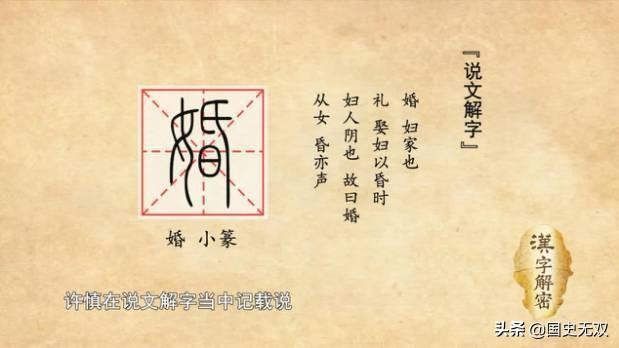 『说文解字』
婚 妇家也
礼 娶妇以昏时
妇人阴也 故曰婚
从女 昏亦声
婚
婚 小篆
许慎在说文解字当中记载说
漢字解密
头条 @国史无双